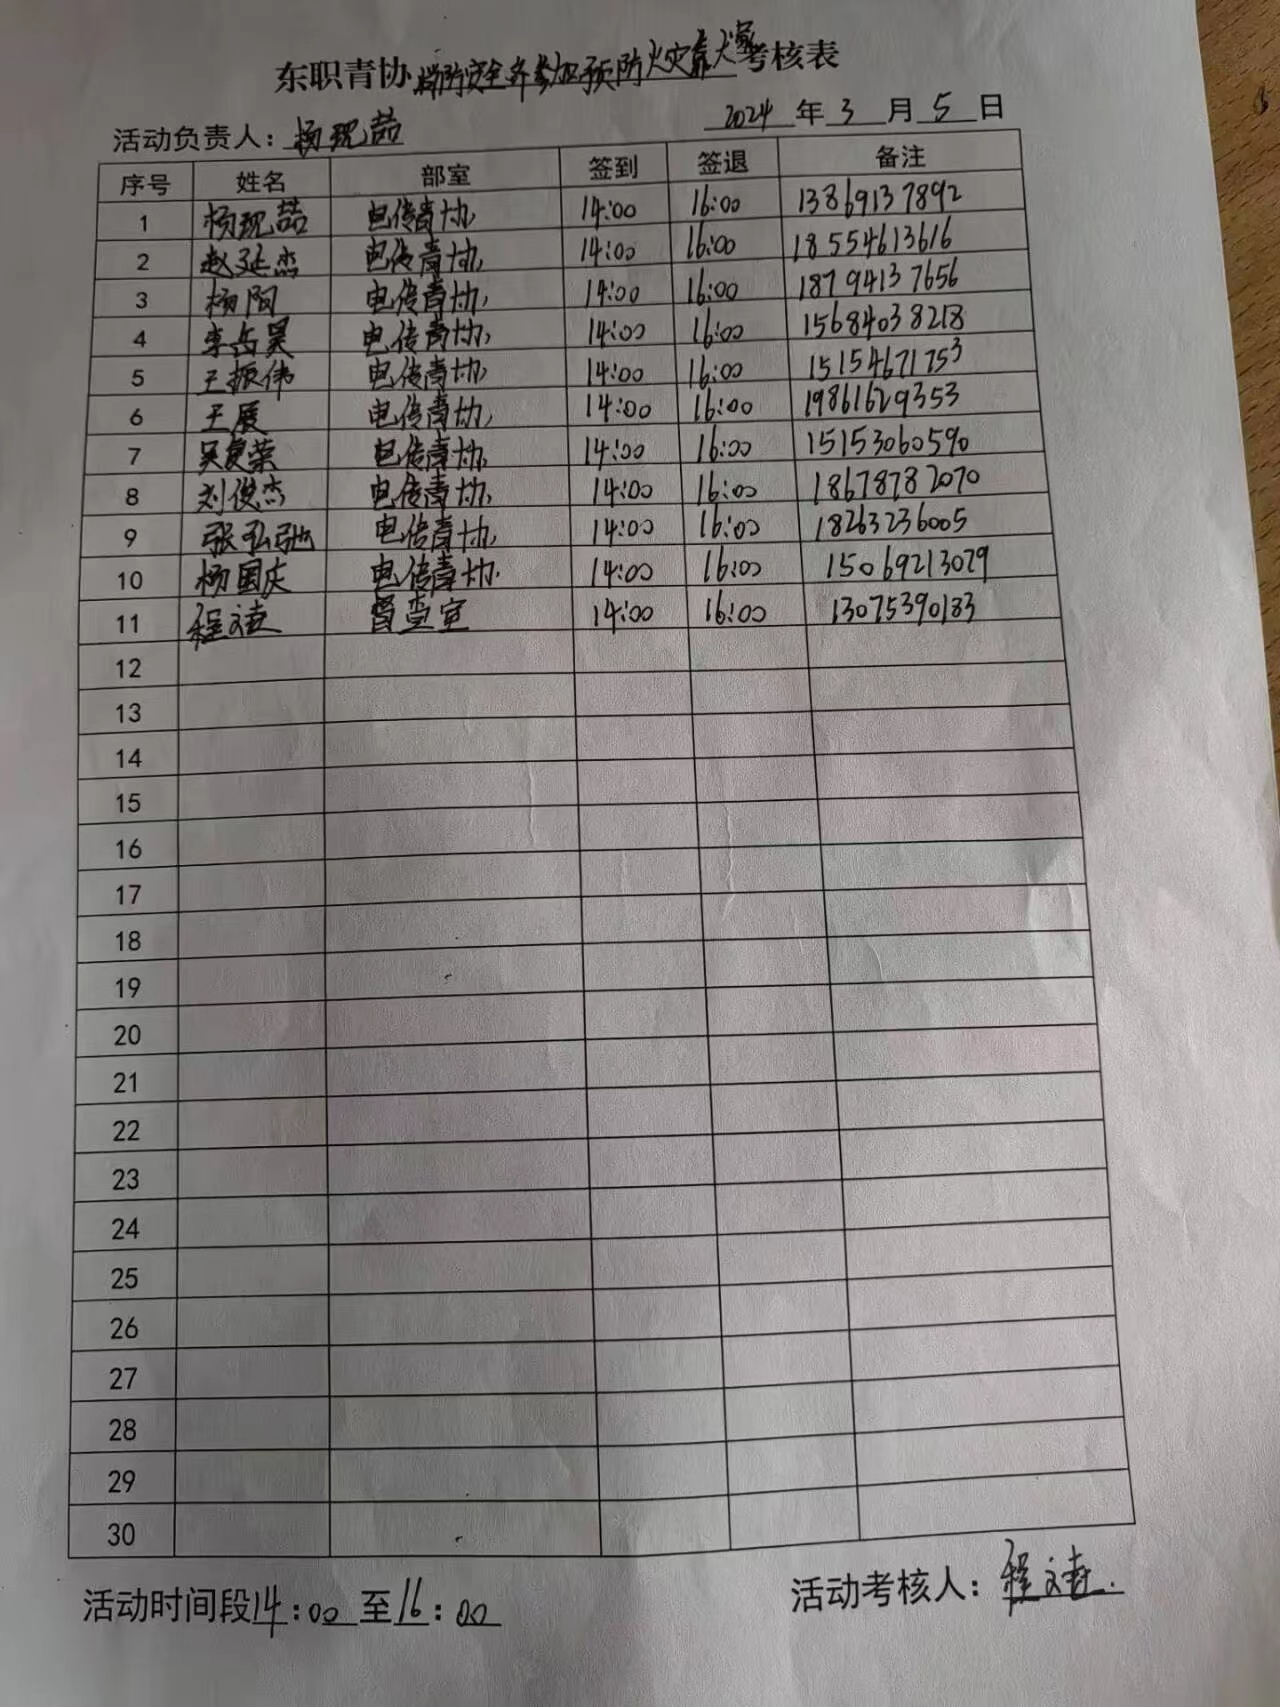 东职青协消防安全齐参加预防火灾靠大家考核表
活动负责人：杨现喆 2024年3月5日
序号 姓名 部室 签到 签退 备注
1 杨现喆 电传青协 14:00 16:00 13869137892
2 赵延杰 电传青协 14:00 16:00 18554613616
3 杨阳 电传青协 14:00 16:00 18794137656
4 李占昊 电传青协 14:00 16:00 15684038218
5 王振伟 电传青协 14:00 16:00 15154671753
6 王展 电传青协 14:00 16:00 19861629353
7 吴复荣 电传青协 14:00 16:00 15153060590
8 刘俊杰 电传青协 14:00 16:00 18678782070
9 张弘弛 电传青协 14:00 16:00 18263236005
10 杨国庆 电传青协 14:00 16:00 15069213029
11 程文 督查室 14:00 16:00 13075390183
12
13
14
15
16
17
18
19
20
21
22
23
24
25
26
27
28
29
30
活动时间段14:00至16:00 活动考核人：程文